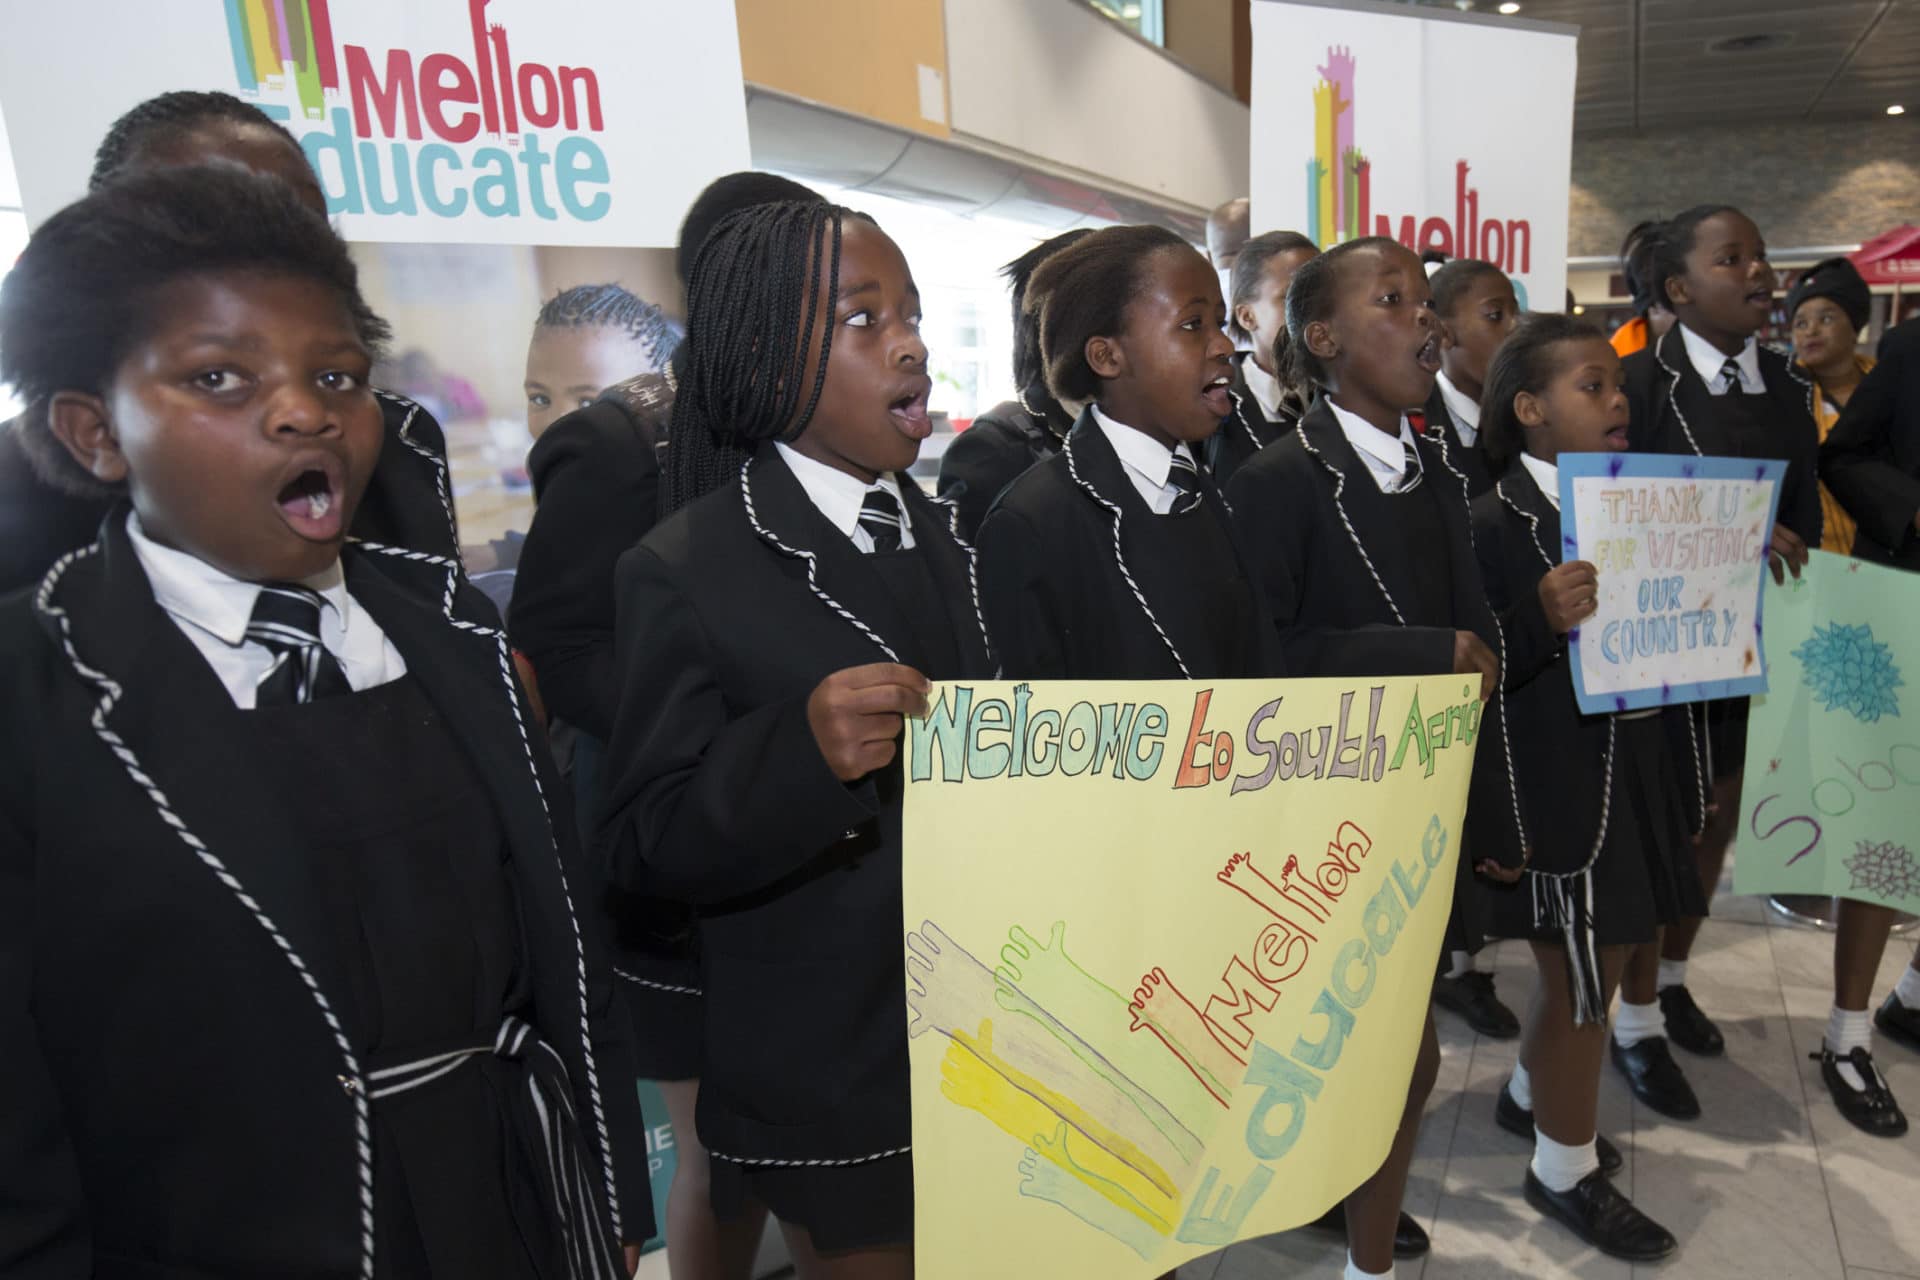 Mellon
Educate
Mellon
THANK U
FOR VISITING
OUR
COUNTRY
Welcome to South Afric
Mellon
Educate
Sobo